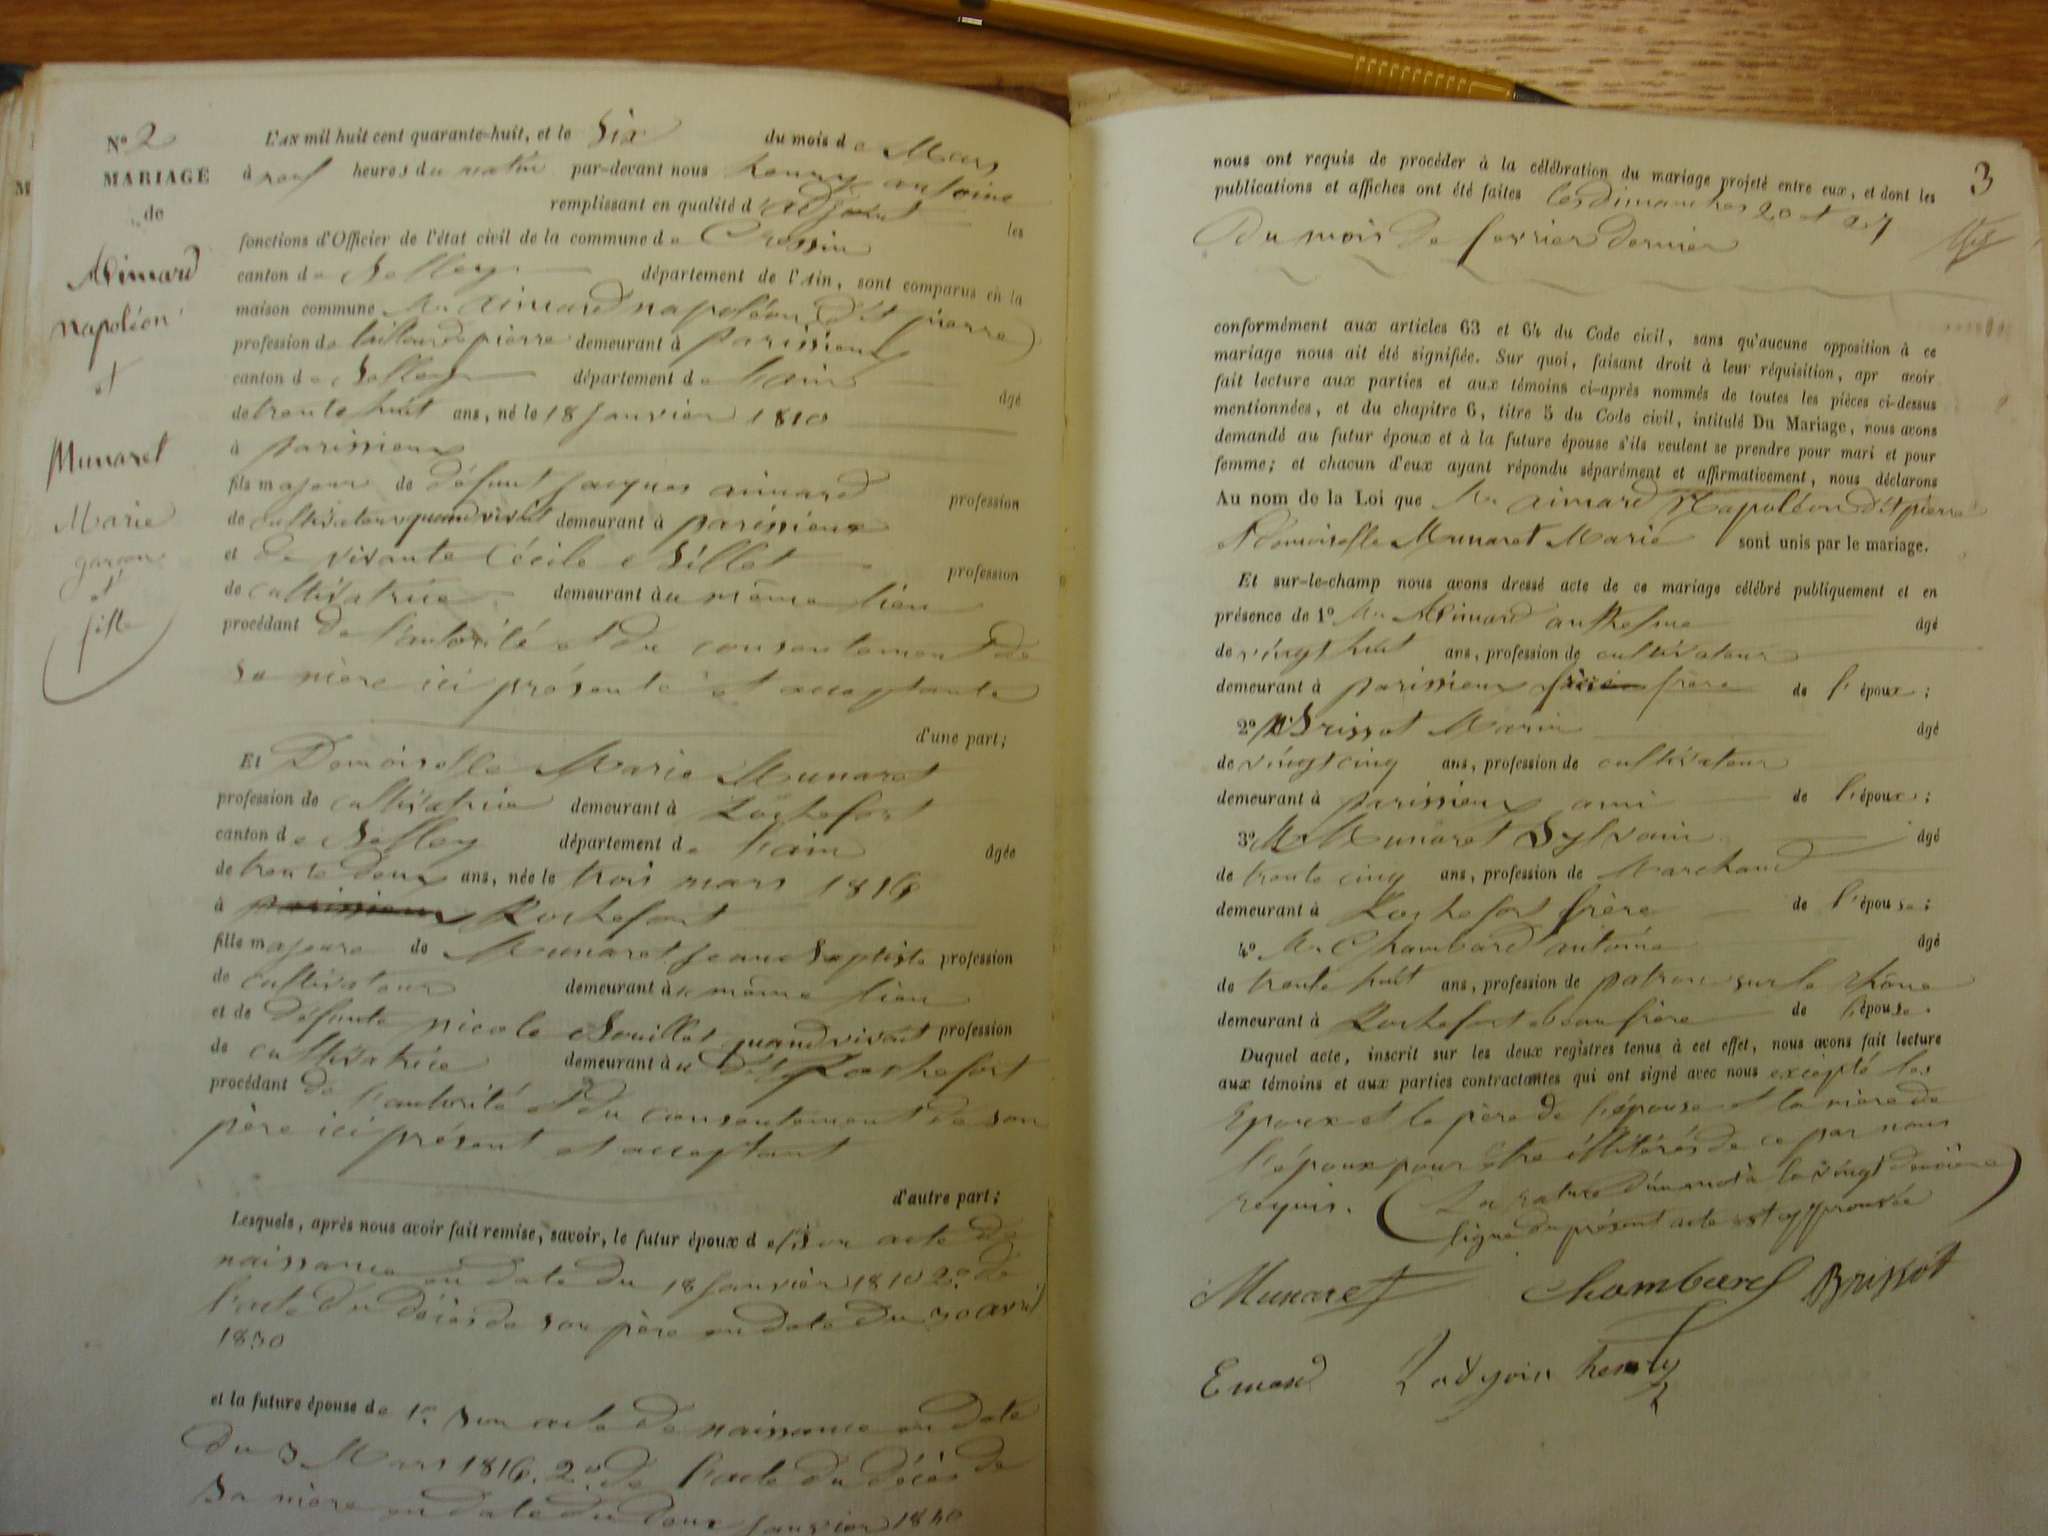 No 2
MARIAGE
de
Aimard
napoléon
et
Munaret
Marie
garçon
et
fille
L'AN mil huit cent quarante-huit, et le Six du mois de Mars
à neuf heures du matin par-devant nous henry antoine
remplissant en qualité d'adjoint les
fonctions d'Officier de l'état civil de la commune de Cressin
canton de Belley département de l'Ain, sont comparus en la
maison commune Mr aimard napoléon dit pierre
profession de tailleur de pierre demeurant à parissieux
canton de Belley département de l'ain âgé
de trente huit ans, né le 18 Janvier 1810
à parissieux
fils majeur de défunt Jacques aimard profession
de cultivateur quand vivait demeurant à parissieux
et de vivante Cécile Billet profession
de cultivatrice demeurant au même lieu
procédant de l'autorité et du consentement de
sa mère ici présente et acceptante
d'une part;
Et Demoiselle Marie Munaret
profession de cultivatrice demeurant à Rochefort
canton de Belley département de l'ain âgée
de trente deux ans, née le trois mars 1816
à parissieux Rochefort
fille majeure de Munaret Jean Baptiste profession
de cultivateur demeurant au même lieu
et de défunte nicole Bouillet quand vivait profession
de cultivatrice demeurant au dit Rochefort
procédant de l'autorité et du consentement de son
père ici présent et acceptant
d'autre part;
Lesquels, après nous avoir fait remise, savoir, le futur époux de son acte de
naissance en date du 18 Janvier 1810 2º de
l'acte du décès de son père en date du 30 avril
1830
et la future épouse de 1º Son acte de naissance en date
du 3 Mars 1816. 2º de l'acte du décès de
sa mère en date du Janvier
3
nous ont requis de procéder à la célébration du mariage projeté entre eux, et dont les
publications et affiches ont été faites les dimanches 20 et 27
du mois de fevrier dernier
conformément aux articles 63 et 64 du Code civil, sans qu'aucune opposition à ce
mariage nous ait été signifiée. Sur quoi, faisant droit à leur réquisition, apr avoir
fait lecture aux parties et aux témoins ci-après nommés de toutes les pièces ci-dessus
mentionnées, et du chapitre 6, titre 5 du Code civil, intitulé Du Mariage, nous avons
demandé au futur époux et à la future épouse s'ils veulent se prendre pour mari et pour
femme; et chacun d'eux ayant répondu séparément et affirmativement, nous déclarons
Au nom de la Loi que Mr aimard Napoléon dit pierre
et Demoiselle Munaret Marie sont unis par le mariage.
Et sur-le-champ nous avons dressé acte de ce mariage célébré publiquement et en
présence de 1º Mr Aimard anthelme âgé
de vingt huit ans, profession de cultivateur
demeurant à parissieux frère de l'époux;
2º Mr Brissot Marin âgé
de vingt cinq ans, profession de cultivateur
demeurant à parissieux ami de l'époux;
3º Mr Munaret Sylvain âgé
de trente cinq ans, profession de Marchand
demeurant à Rochefort frère de l'épouse;
4º Mr Chambard antoine âgé
de trente huit ans, profession de patron sur le rhône
demeurant à Rochefort beau frère de l'épouse.
Duquel acte, inscrit sur les deux registres tenus à cet effet, nous avons fait lecture
aux témoins et aux parties contractantes qui ont signé avec nous excepté les
Epoux et le père de l'épouse et la mère de
l'époux pour être illitérés de ce par nous
requis. (La rature d'un mot à la vingt deuxième
ligne du présent acte est approuvée)
Munaret Chambard Brissot
Emard l'adjoin henry